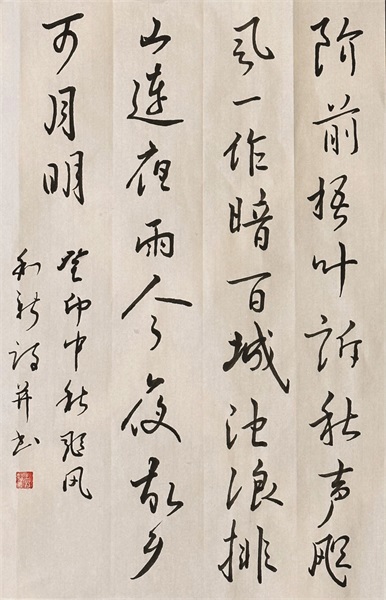 阶前梧叶诉秋声飓
风一作暗百城池浪排
山连夜雨今夜故乡
可月明
癸卯中秋飓风
利新诗并书